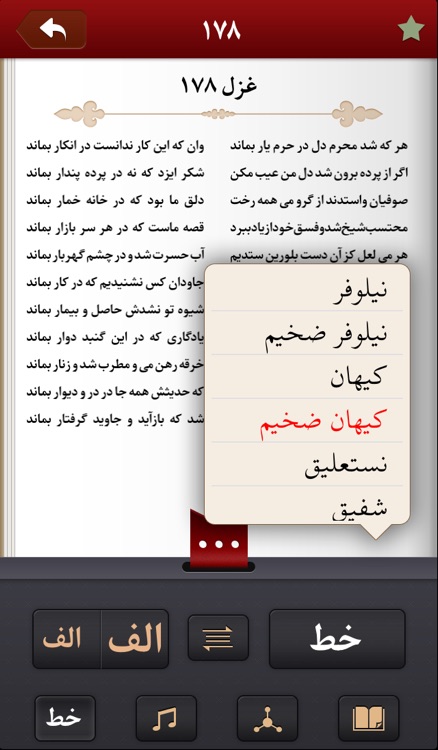 ۱۷۸
غزل ۱۷۸
هر که شد محرم دل در حرم یار بماند
وان که این کار ندانست در انکار بماند
اگر از پرده برون شد دل من عیب مکن
شکر ایزد که نه در پرده پندار بماند
صوفیان واستدند از گرو می همه رخت
دلق ما بود که در خانه خمار بماند
محتسب شیخ شد و فسق خود از یاد ببرد
قصه ماست که در هر سر بازار بماند
هر می لعل کز آن دست بلورین ستدیم
آب حسرت شد و در چشم گهربار بماند
جاودان کس نشنیدیم که در کار بماند
شیوه تو نشدش حاصل و بیمار بماند
یادگاری که در این گنبد دوار بماند
خرقه رهن می و مطرب شد و زنار بماند
که حدیثش همه جا در در و دیوار بماند
شد که بازآید و جاوید گرفتار بماند
نیلوفر
نیلوفر ضخیم
کیهان
کیهان ضخیم
نستعلیق
شفیق
خط
الف الف
خط